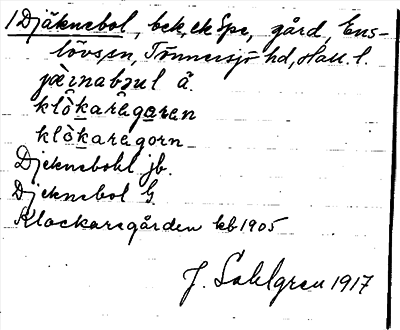 1 Djäknebol, bek, ek Spr, gård, Ens-
lövs sn, Tönnersjö hd, Hall. l.
jæ̀rnabɔul ä.
klò̀karegaren
klò̀karegorn
Djeknebohl jb.
Djeknebol G
Klockaregården kb 1905
J. Sahlgren 1917